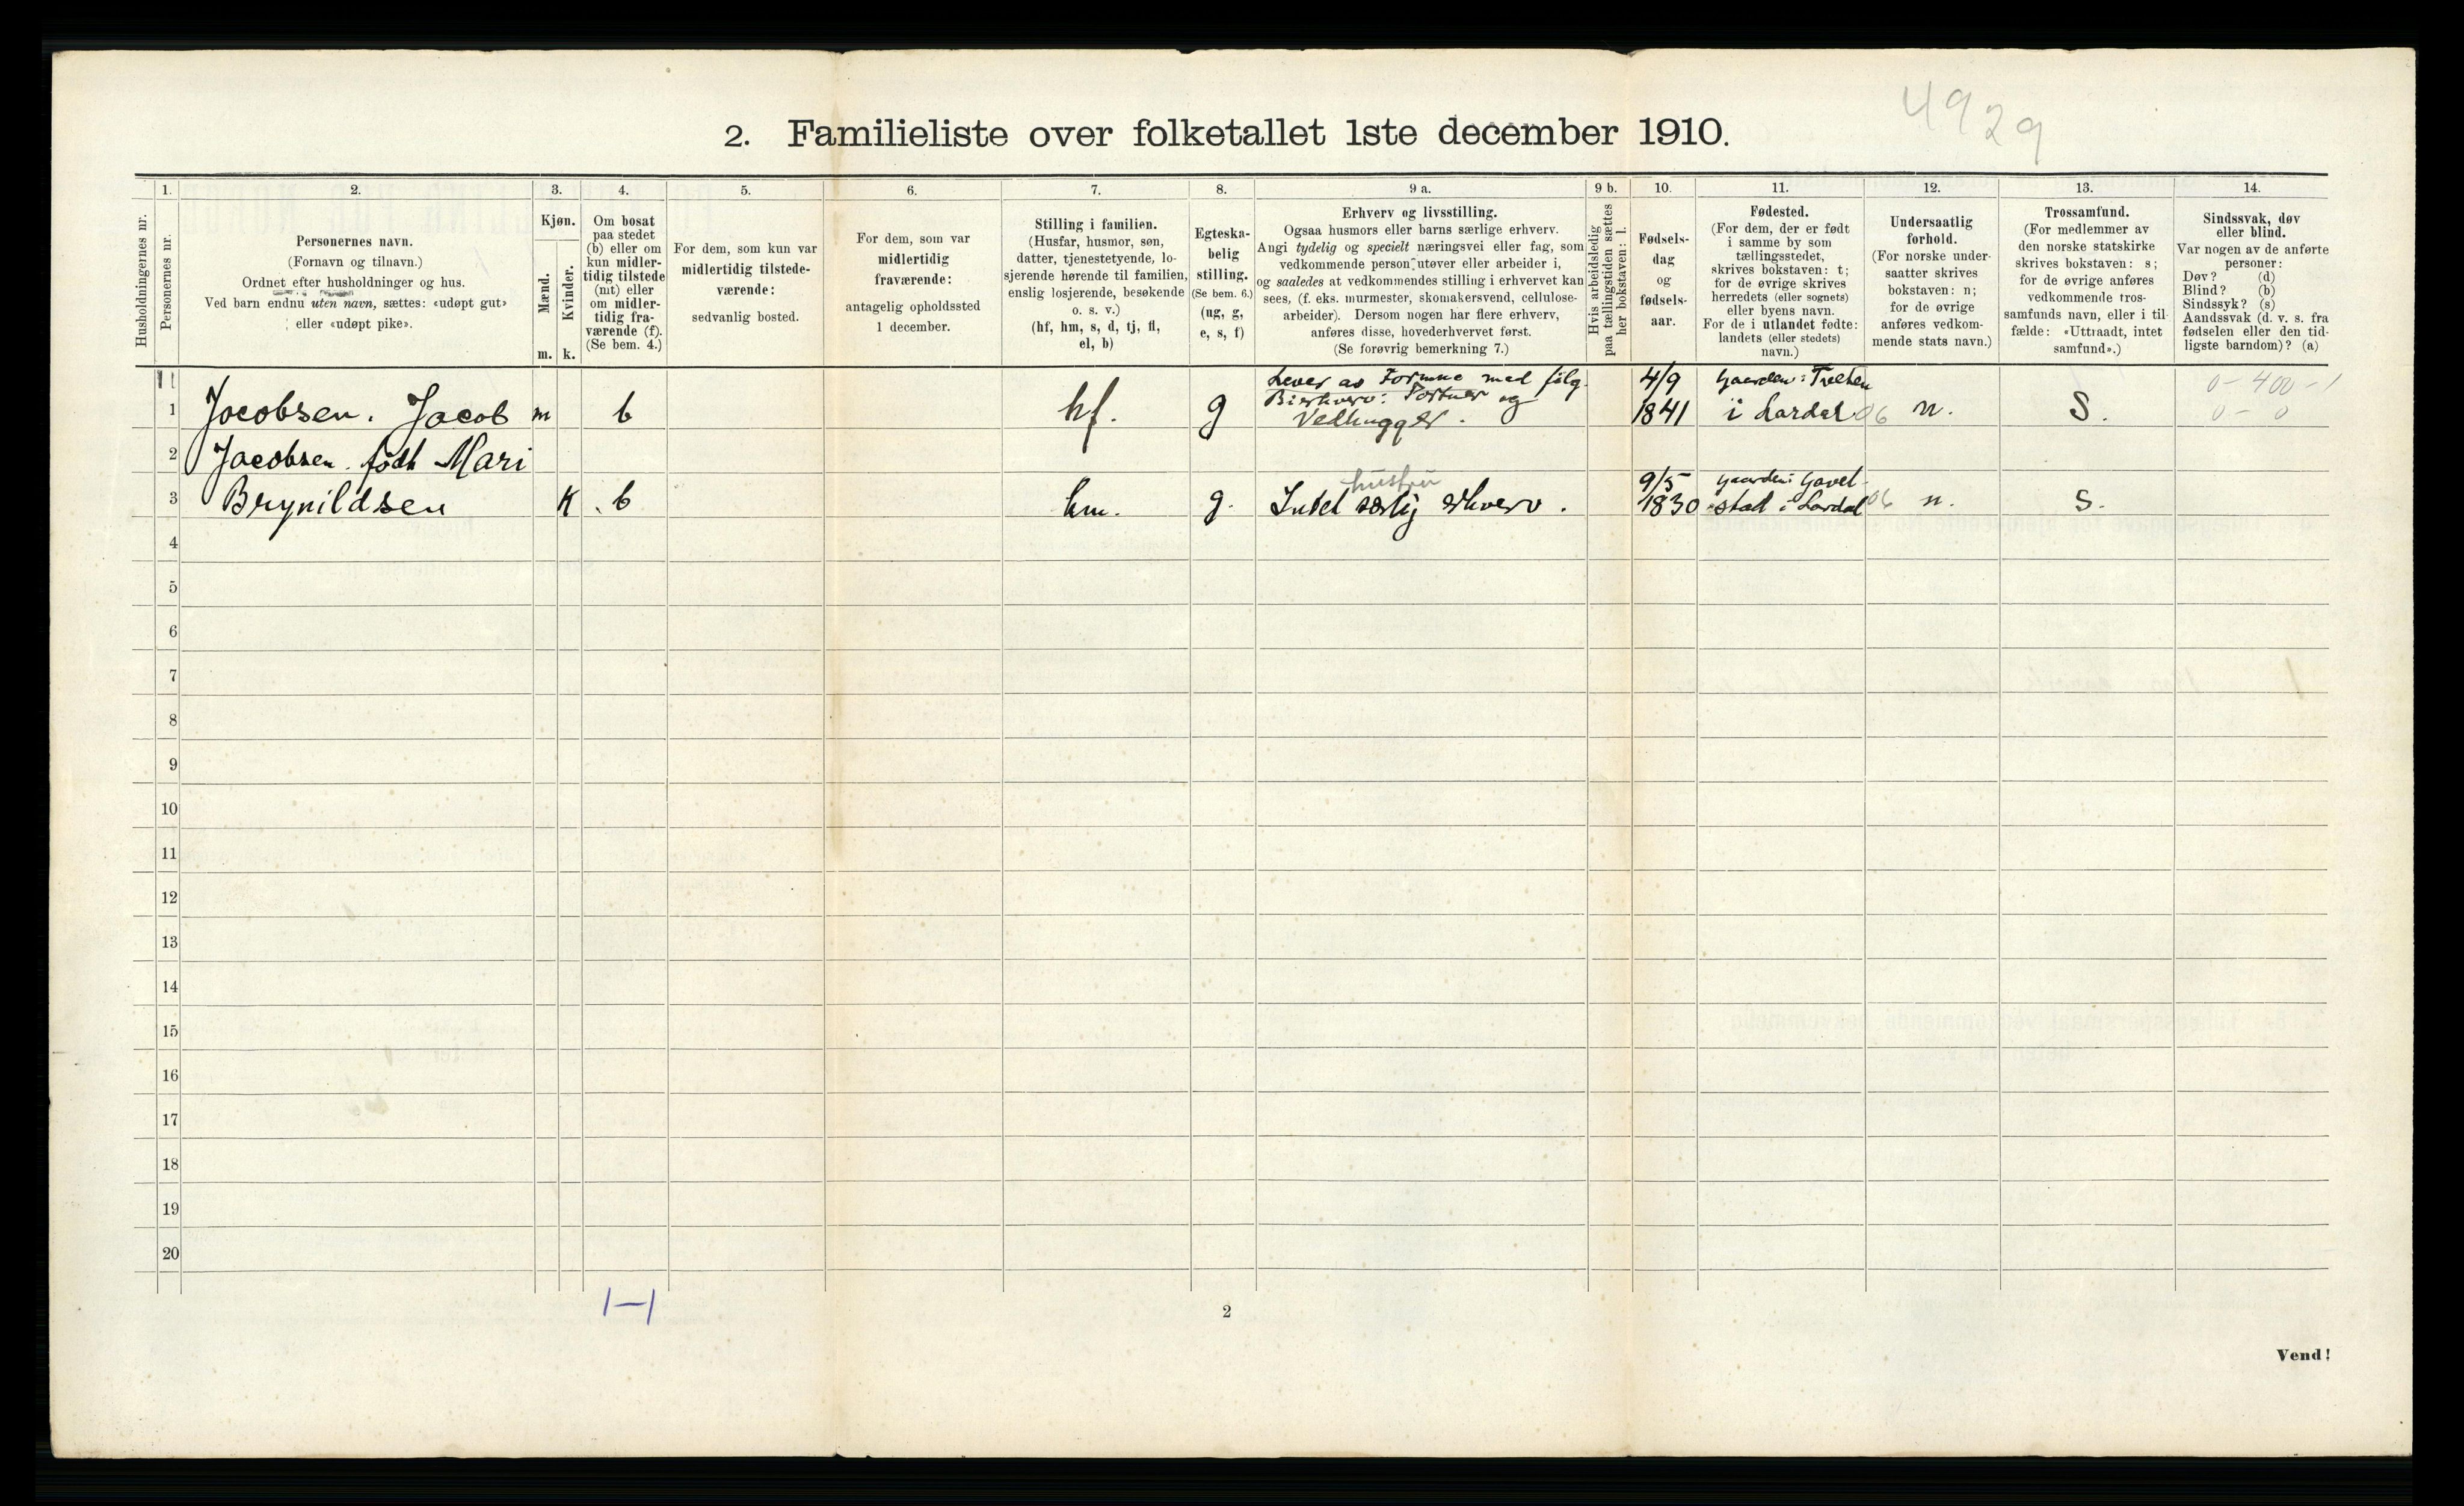 4929
2. Familieliste over folketallet 1ste december 1910.
1. 2. 3. 4. 5. 6. 7. 8. 9 a. 9 b. 10. 11. 12. 13. 14.
Husholdningernes nr.
Personernes nr.
Personernes navn.
(Fornavn og tilnavn.)
Ordnet efter husholdninger og hus.
Ved barn endnu uten navn, sættes: «udøpt gut»
eller «udøpt pike».
Kjøn.
Mænd.
Kvinder.
m. k.
Om bosat
paa stedet
(b) eller om
kun midler-
tidig tilstede
(mt) eller
om midler-
tidig fra-
værende (f).
(Se bem. 4.)
For dem, som kun var
midlertidig tilstede-
værende:
sedvanlig bosted.
For dem, som var
midlertidig
fraværende:
antagelig opholdssted
1 december.
Stilling i familien.
(Husfar, husmor, søn,
datter, tjenestetyende, lo-
sjerende hørende til familien,
enslig losjerende, besøkende
o. s. v.)
(hf, hm, s, d, tj, fl,
el, b)
Egteska-
belig
stilling.
(Se bem. 6.)
(ug, g,
e, s, f)
Erhverv og livsstilling.
Ogsaa husmors eller barns særlige erhverv.
Angi tydelig og specielt næringsvei eller fag, som
vedkommende person utøver eller arbeider i,
og saaledes at vedkommendes stilling i erhvervet kan
sees, (f. eks. murmester, skomakersvend, cellulose-
arbeider). Dersom nogen har flere erhverv,
anføres disse, hovederhvervet først.
(Se forøvrig bemerkning 7.)
Hvis arbeidsledig
paa tællingstiden sættes
her bokstaven: l.
Fødsels-
dag
og
fødsels-
aar.
Fødested.
(For dem, der er født
i samme by som
tællingsstedet,
skrives bokstaven: t;
for de øvrige skrives
herredets (eller sognets)
eller byens navn.
For de i utlandet fødte:
landets (eller stedets)
navn.)
Undersaatlig
forhold.
(For norske under-
saatter skrives
bokstaven: n;
for de øvrige
anføres vedkom-
mende stats navn.)
Trossamfund.
(For medlemmer av
den norske statskirke
skrives bokstaven: s;
for de øvrige anføres
vedkommende tros-
samfunds navn, eller i til-
fælde: «Uttraadt, intet
samfund».)
Sindssvak, døv
eller blind.
Var nogen av de anførte
personer:
Døv? (d)
Blind? (b)
Sindssyk? (s)
Aandssvak (d. v. s. fra
fødselen eller den tid-
ligste barndom)? (a)
Lever av Formue med følg. 4/9 Gaarden: 0 - 400 - 1
Bierhverv: Portner og
1 Jacobsen. Jacob m b hf. g Vedhugger. 1841 i Lardal 06 n. S. 0 - 0
2 Jacobsen. født Mari
hustru 9/5 gaarden: Gavel-
3 Brynildsen K b hm. g. Intet særlig erhverv. 1830 stad i Lardal 06 n. S.
4
5
6
7
8
9
10
11
12
13
14
15
16
17
18
19
20
1-1
2
Vend!